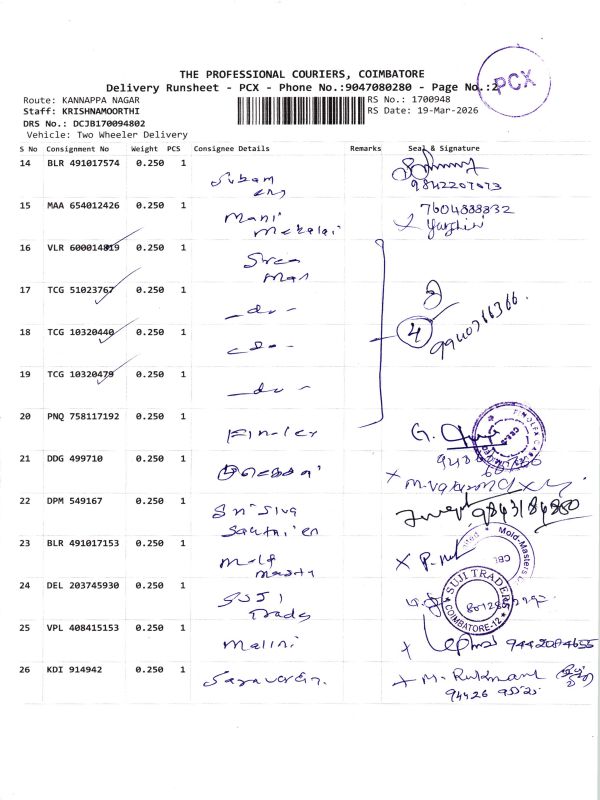 THE PROFESSIONAL COURIERS, COIMBATORE
Delivery Runsheet - PCX - Phone No.:9047080280 - Page No.:2
PCX
Route: KANNAPPA NAGAR
RS No.: 1700948
Staff: KRISHNAMOORTHI
RS Date: 19-Mar-2026
DRS No.: DCJB170094802
Vehicle: Two Wheeler Delivery
S No Consignment No Weight PCS Consignee Details Remarks Seal & Signature
14 BLR 491017574 0.250 1 Subam
9842207073
15 MAA 654012426 0.250 1 Mani Mekalai 7604888832
16 VLR 600014819 0.250 1 Sree
17 TCG 51023767 0.250 1 -do-
18 TCG 10320440 0.250 1 -do- 4
19 TCG 10320479 0.250 1 -do-
20 PNQ 758117192 0.250 1 Finoler G.
21 DDG 499710 0.250 1
22 DPM 549167 0.250 1 Sri Siva 9843184860
23 BLR 491017153 0.250 1 Mold Masta
Mold-Masters
CBL
24 DEL 203745930 0.250 1 Suji Trades
SUJI TRADERS
COIMBATORE-12
25 VPL 408415153 1 0.250 Malini 9442084655
26 KDI 914942 0.250 1 Saravanan. M. Rukmani
94426